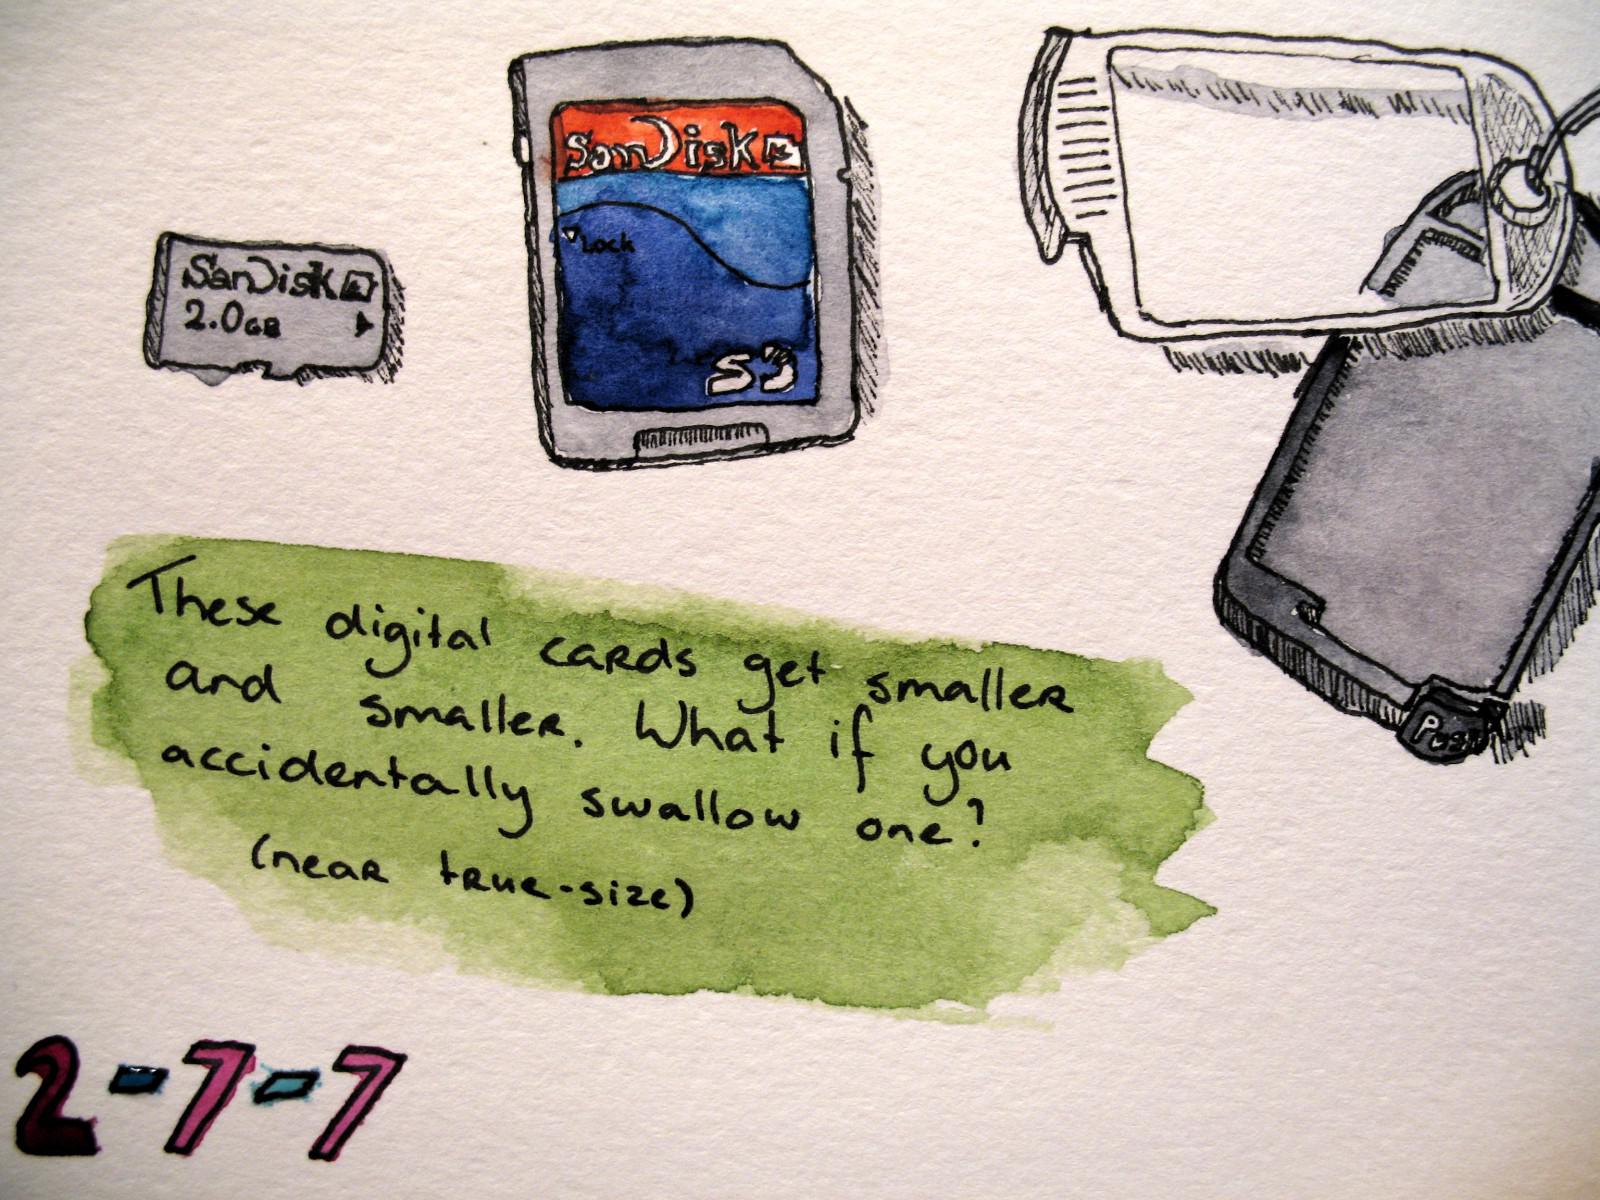 SanDisk
2.0GB
SanDisk
Lock
SD
Push
These digital cards get smaller
and smaller. What if you
accidentally swallow one?
(near true-size)
2-7-7